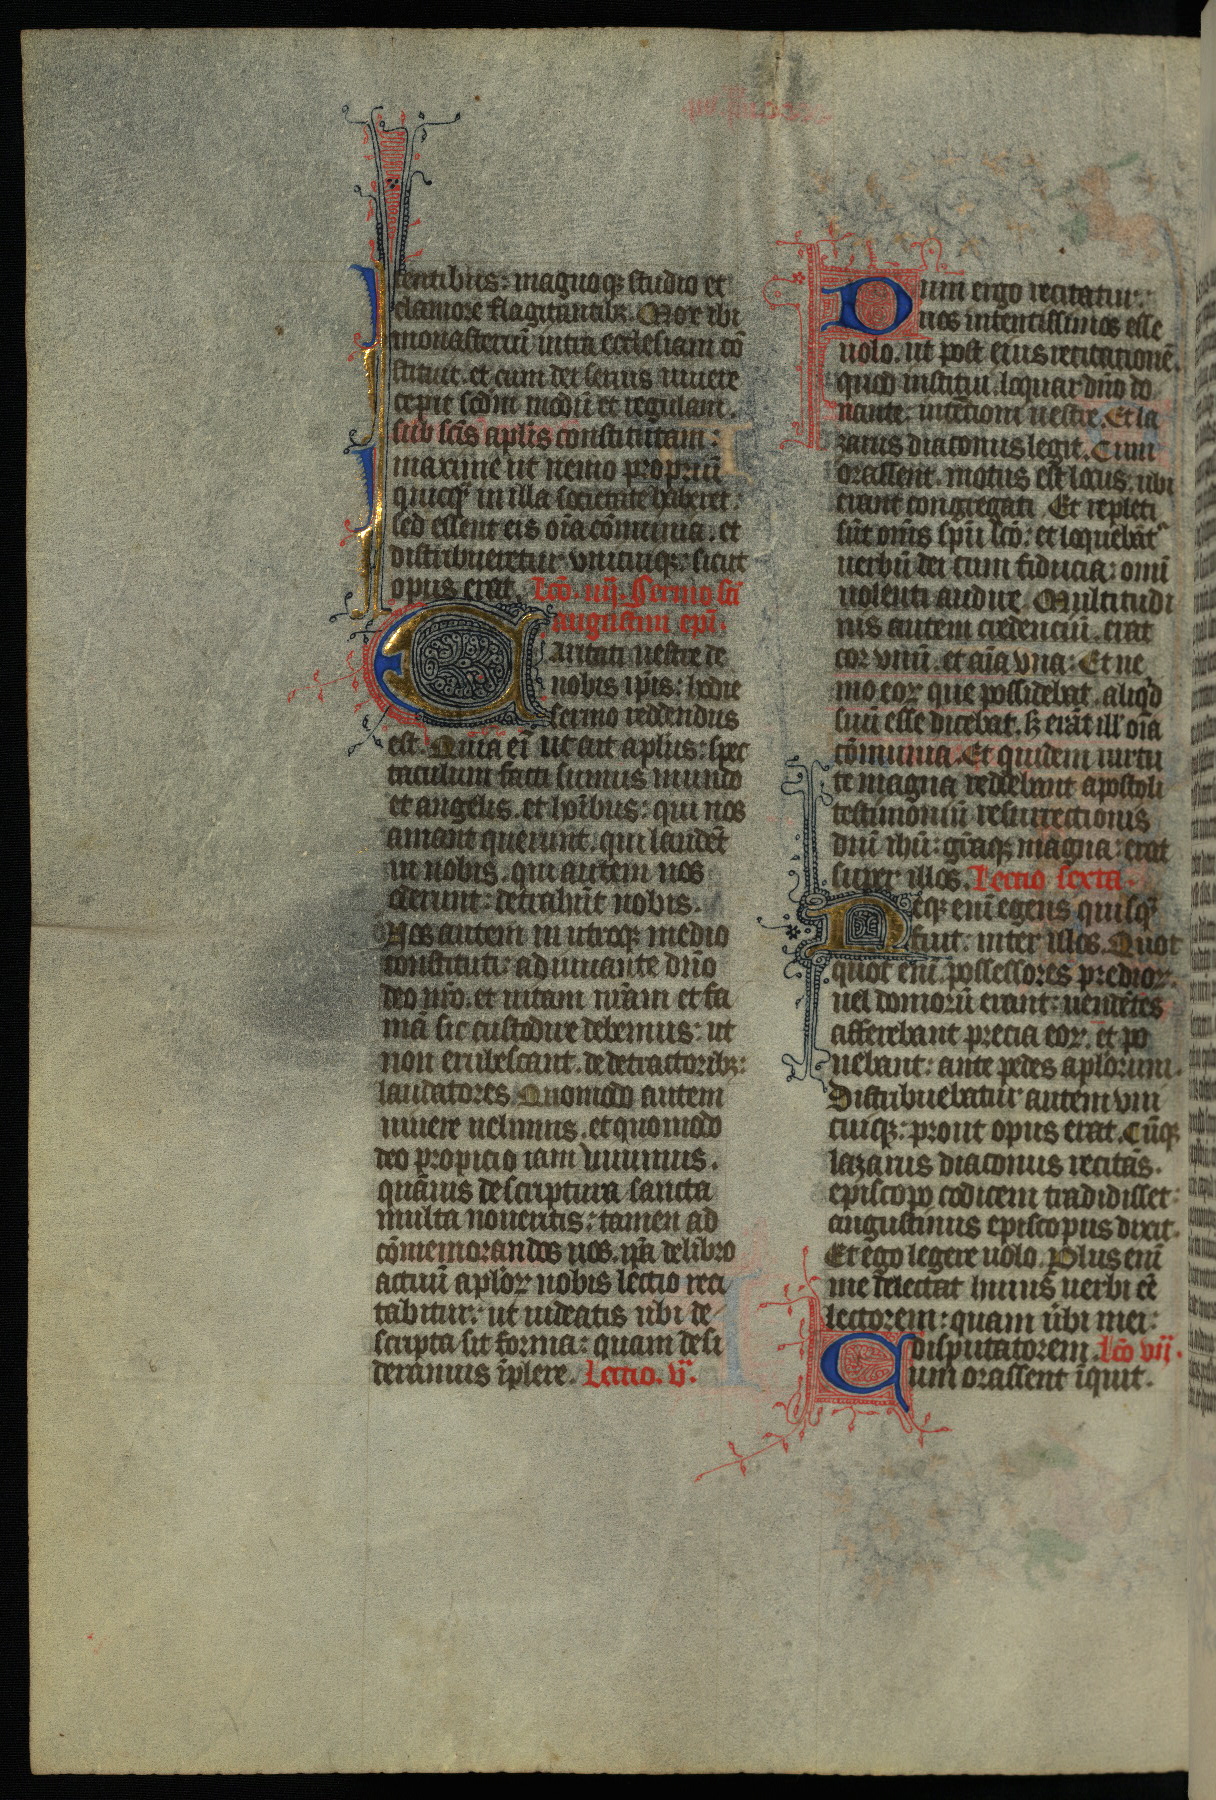 tentibus: magnoqꝫ studio et
clamore flagitantibꝫ. Mox ibi
monasteriũ intra ecclesiam cõ
stituit. et cum dei seruis uiuere
cepit scďm modũ et regulam.
sub scĩs aplis constitutam:
maxime ut nemo propriũ
quicqꝫ in illa societate haberet:
sed essent eis oĩa cõmunia. et
distribueretur vnicuiqꝫ: sicut
opus erat. Lcõ. iiij. Sermo scĩ
augustini epĩ.
Caritati uestre de
nobis ip̃is: hodie
sermo reddendus
est. Quia eĩ ut ait aplus: spec
taculum facti sumus mundo
et angelis. et hoĩbus: qui nos
amant querunt. qui laudẽt
in nobis. qui autem nos
oderunt: detrahũt nobis.
Nos autem in utroqꝫ medio
constituti: adiuuante dño
deo nr̃o. et uitam nr̃am et fa
mã sic custodire debemus: ut
non erubescant. de detractoribꝫ:
laudatores. Quomodo autem
uiuere uelimus. et quomodo
deo propicio iam uiuimus.
quãuis de scriptura sancta
multa noueritis: tamen ad
cõmemorandos uos. ip̃a de libro
actuũ aplorꝫ nobis lectio reci
tabitur: ut uideatis ubi de
scripta sit forma: quam desi
deramus ĩplere. Lectio. v.ͣ
Dum ergo recitatur:
uos intentissimos esse
uolo. ut post eius recitationẽ.
quod institui. loquar dño do
nante: intẽtioni uestre. Et la
zarus diaconus legit. Cum
orassent. motus est locus. ubi
erant congregati. Et repleti
sũt oms̃ spũ scõ: et loquebãt᷑
uerbũ dei cum fiducia: omĩ
uolenti audire. Multitudi
nis autem credenciũ. erat
cor vnũ. et aĩa vna: Et ne
mo eorꝫ que possidebat. aliqͥd
suũ esse dicebat. sꝫ erãt ill᷑ oĩa
cõmunia. Et quidem uirtu
te magna reddebant apostoli
testimoniũ resurrectionis
dñi ihũ: gr̃aqꝫ magna: erat
super illos. Lectio sexta.
Neqꝫ enĩ egens quisqꝫ
fuit: inter illos. Quot
quot enĩ possessores predioꝝ.
uel domorũ erant: uendẽtes
afferebant precia eoꝝ. et po
nebant: ante pedes aplorum.
Distribuebatur autem vni
cuiqꝫ: prout opus erat. Cũqꝫ
lazarus diaconus recitãs.
episcopo codicem tradidisset:
augustinus episcopus dixit.
Et ego legere uolo. Plus enĩ
me delectat huius uerbi eẽ
lectorem: quam ũbi mei:
disputatorem. Lcõ vij.
Cum orassent ĩquit.